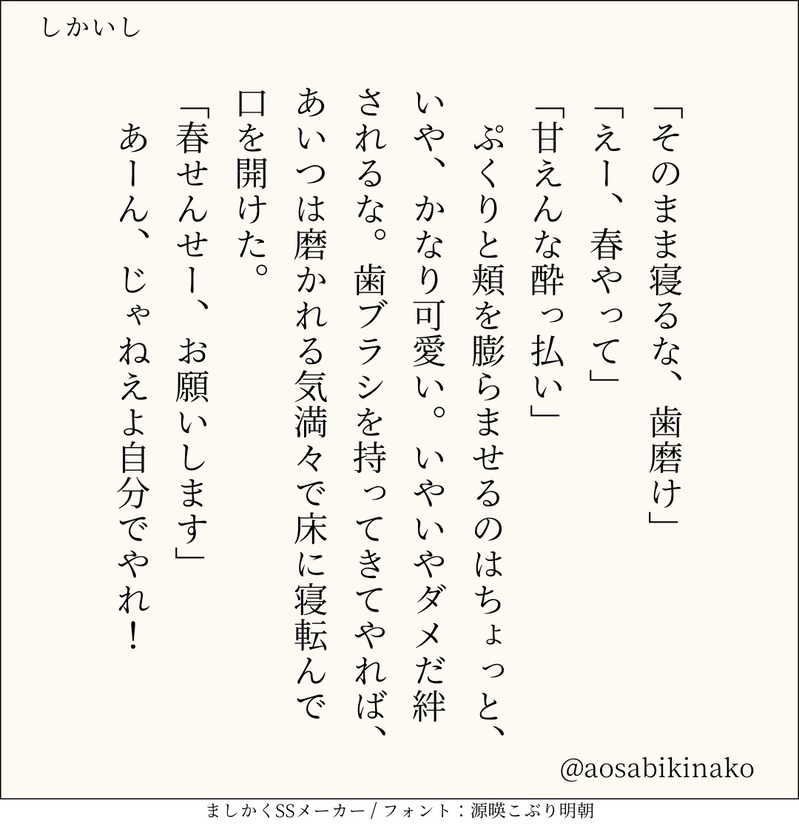 しかいし
「そのまま寝るな、歯磨け」
「えー、春やって」
「甘えんな酔っ払い」
　ぷくりと頬を膨らませるのはちょっと、
いや、かなり可愛い。いやいやダメだ絆
されるな。歯ブラシを持ってきてやれば、
あいつは磨かれる気満々で床に寝転んで
口を開けた。
「春せんせー、お願いします」
　あーん、じゃねえよ自分でやれ！
@aosabikinako
ましかくSSメーカー / フォント：源暎こぶり明朝